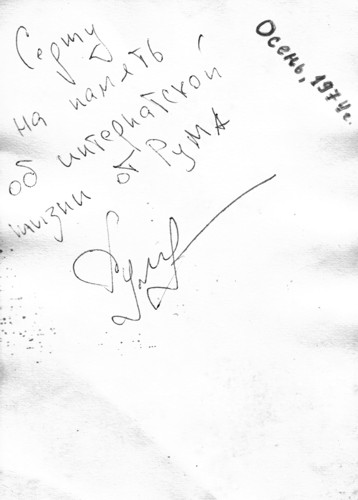 Осень, 1974г.
Сержу
на память
об интернатской
жизни от РуМА